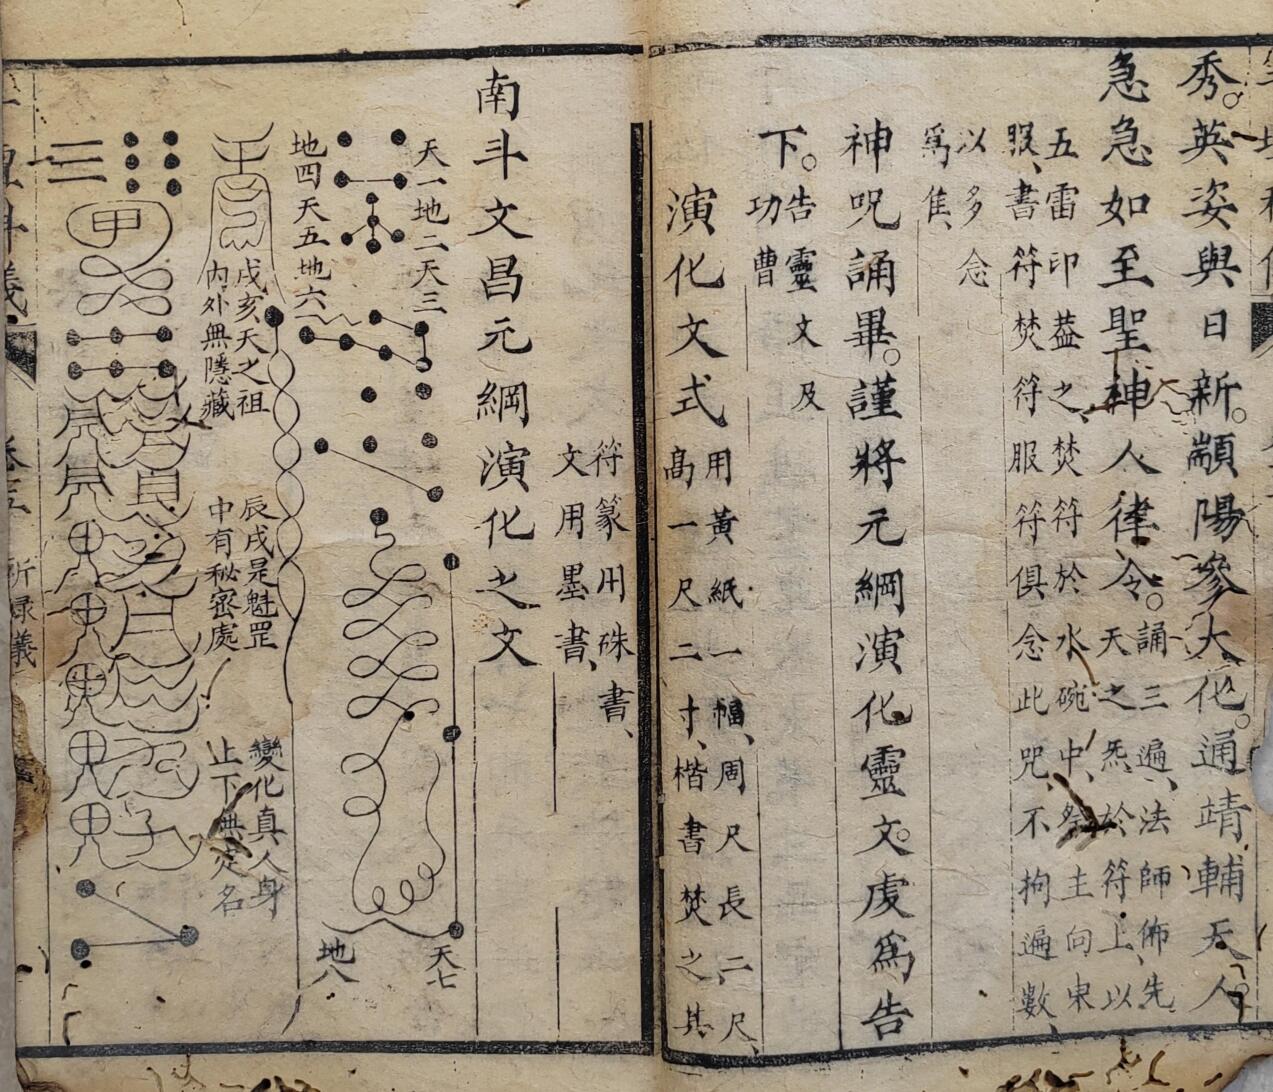 秀。英姿與日新。顓陽參大化。通靖輔天人。
急急如至聖神人律令。誦三遍、法師佈先天之炁、於符上、以
五雷印葢之、焚符於水碗中、祭主向東服、書符焚符服符俱念此咒、不拘遍數、
以多念爲隹、
神呪誦畢。謹將元綱演化靈文。虔爲告
下。告靈文及功曹
演化文式用黃紙一幅、周尺長二尺、高一尺二寸、楷書焚之其
符篆用硃書、文用墨書、
南斗文昌元綱演化之文
天一地二天三
地四天五地六
天七
地八
戊亥天之祖
內外無隱藏
辰戌是魁罡
中有秘密處
變化真人身
止下無定名
甲
卷五 祈祿儀